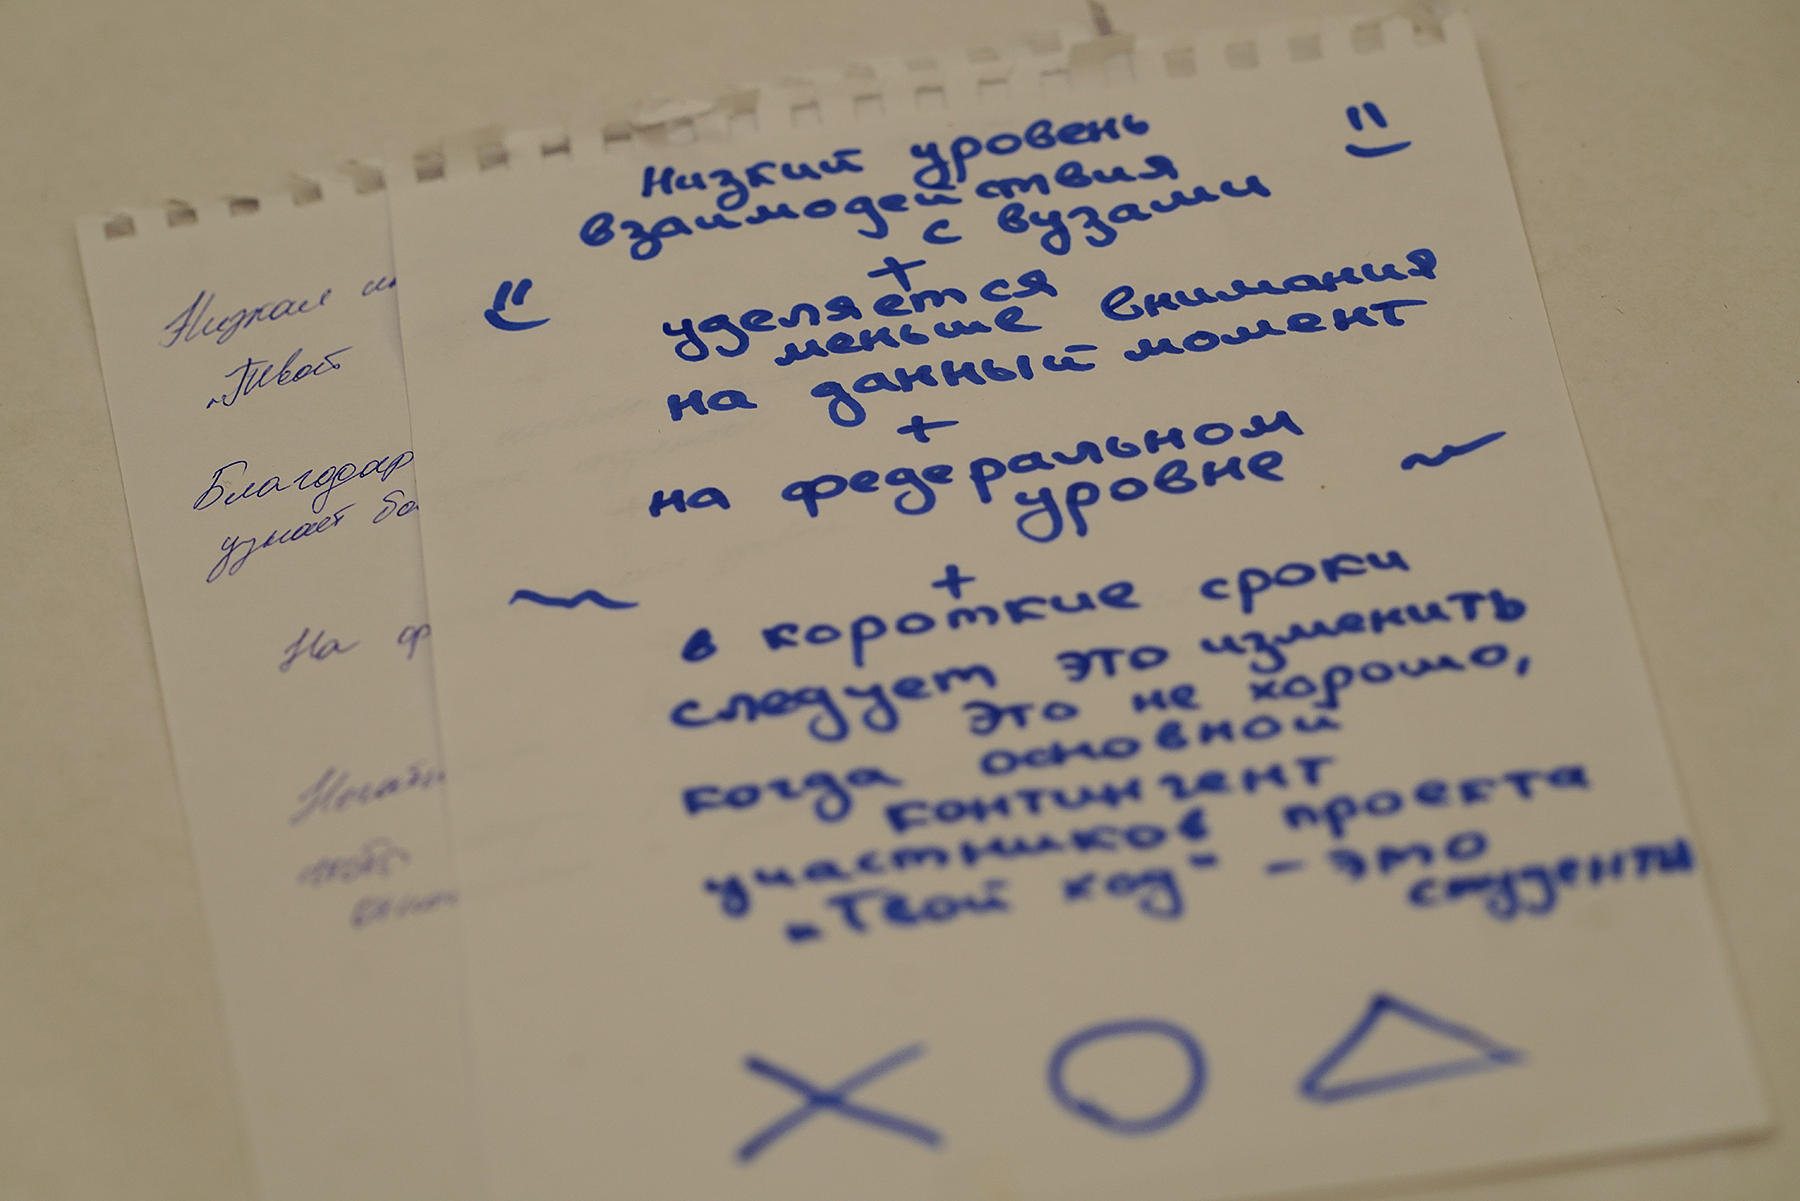 Низкий уровень
взаимодействия
с вузами
+
уделяется
меньше внимания
на данный момент
+
на федеральном
уровне
+
в короткие сроки
следует это изменить
это не хорошо,
когда основной
контингент
участников проекта
"Твой ход" - это
студенты
Низкая
"Твой
Благодар
узнает бо
На ф